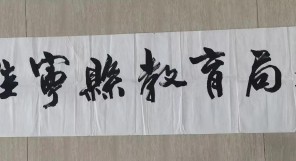 寧縣教育局